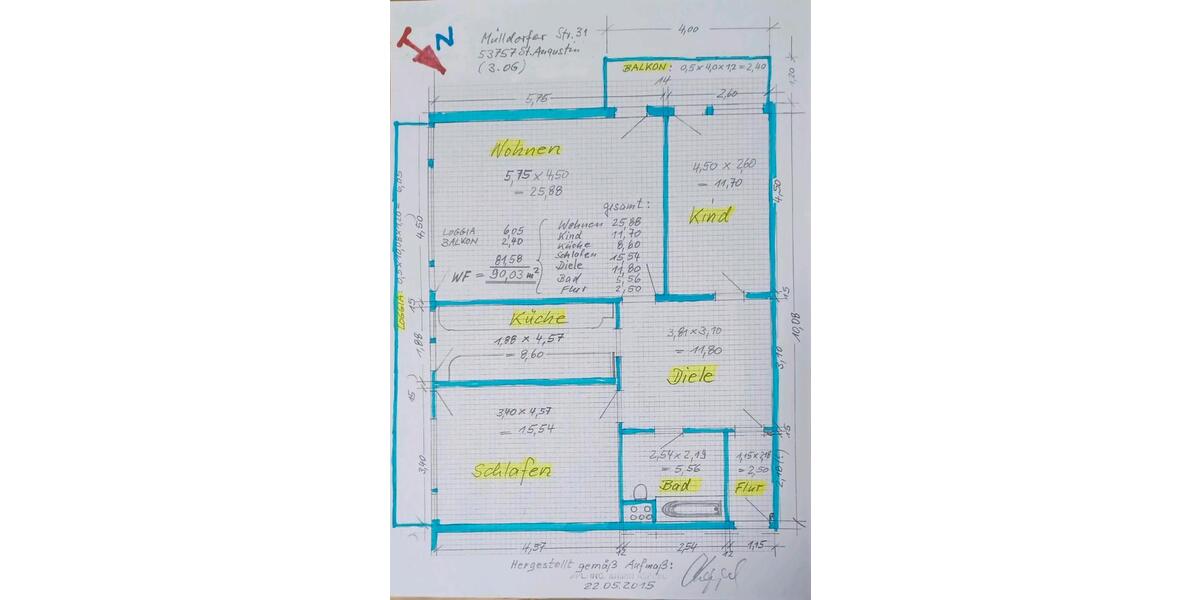 N
Mülldorfer Str. 31
53757 St. Augustin
(3.OG)
4,00
BALKON: 0,5 x 4,0 x 1,2 = 2,40
1,20
5,75
14
2,60
Wohnen
5,75 x 4,50
= 25,88
4,50 x 2,60
= 11,70
Kind
4,50
4,50
LOGGIA: 0,5 x 10,08 x 1,20 = 6,05
gesamt:
Wohnen 25,88
Kind 11,70
Küche 8,60
Schlafen 15,54
Diele 11,80
Bad 5,56
Flur 2,50
LOGGIA 6,05
BALKON 2,40
81,58
WF = 90,03 m²
15
15
10,08
Küche
1,88 x 4,57
= 8,60
1,88
3,81 x 3,10
= 11,80
Diele
3,10
15
3,40 x 4,57
= 15,54
Schlafen
3,40
2,54 x 2,19
= 5,56
Bad
1,15 x 2,18
= 2,50
Flur
15
2,18 (!)
4,57
12
2,54
12
1,15
Hergestellt gemäß Aufmaß:
22.05.2015